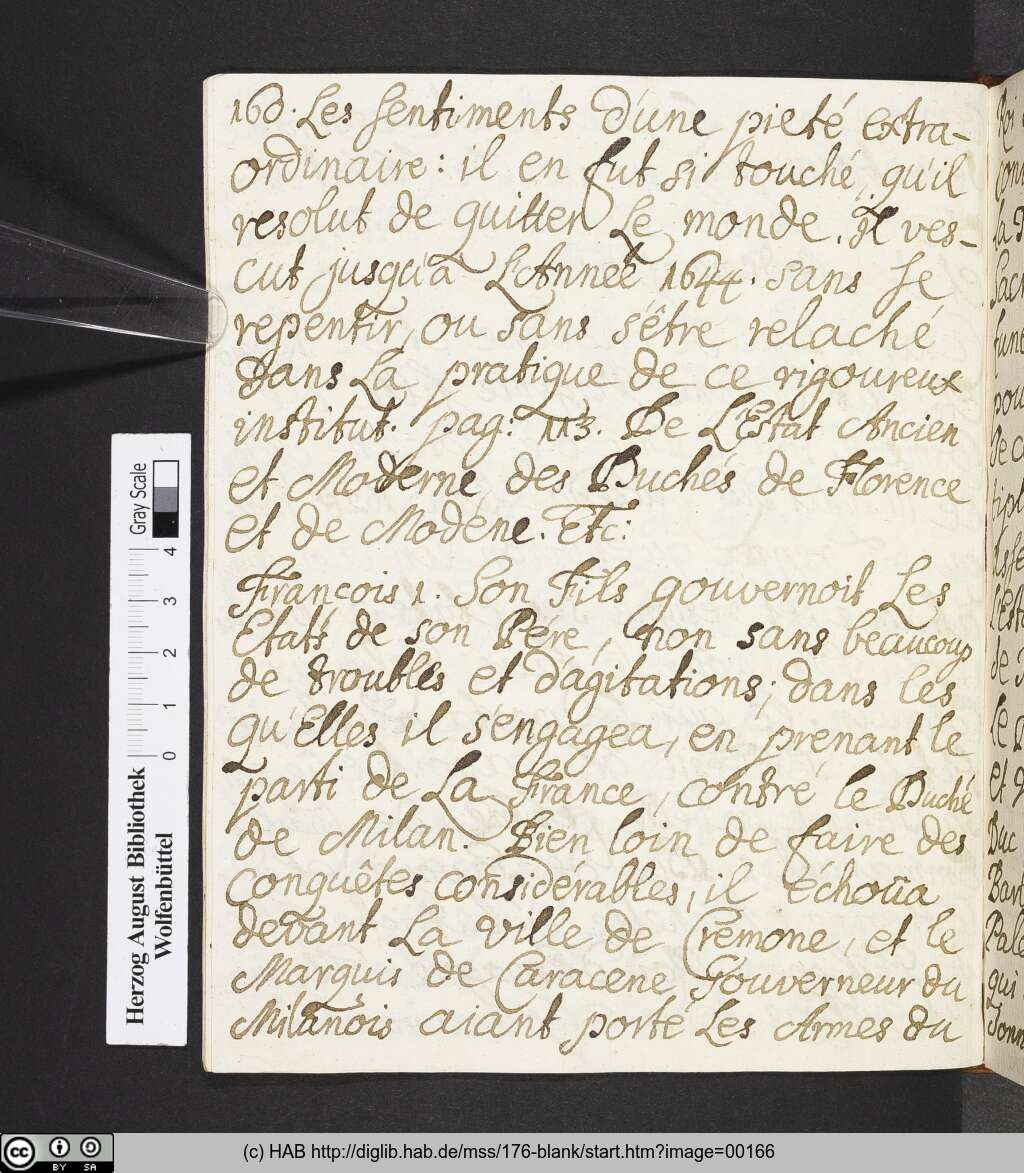 160. Les sentiments d'une pieté extra-
ordinaire: il en fut si touché, qu'il
resolut de quitter Le monde. Il ves-
cut jusqu'à L'Année 1644. sans se
repentir, ou sans s'être relaché
dans La pratique de ce rigoureux
institut. pag: 113. De L'Estat Ancien
et Moderne des Duchés de Florence
et de Modéne. Etc:
François 1. Son Fils gouvernoit Les
Etats de son Pére, non sans beaucoup
de troubles et d'agitations; dans les
qu'Elles il s'engagea, en prénant le
parti de La France, contré le Duché
de Milan. Bien loin de faire des
Conquêtes considérables, il échoüa
devant La ville de Crémone, et le
Marquis de Caracene Gouverneur du
Milanois aiant porté Les Armes du
Herzog August Bibliothek
Wolfenbüttel
Gray Scale
0 1 2 3 4
cc BY SA
(c) HAB http://diglib.hab.de/mss/176-blank/start.htm?image=00166